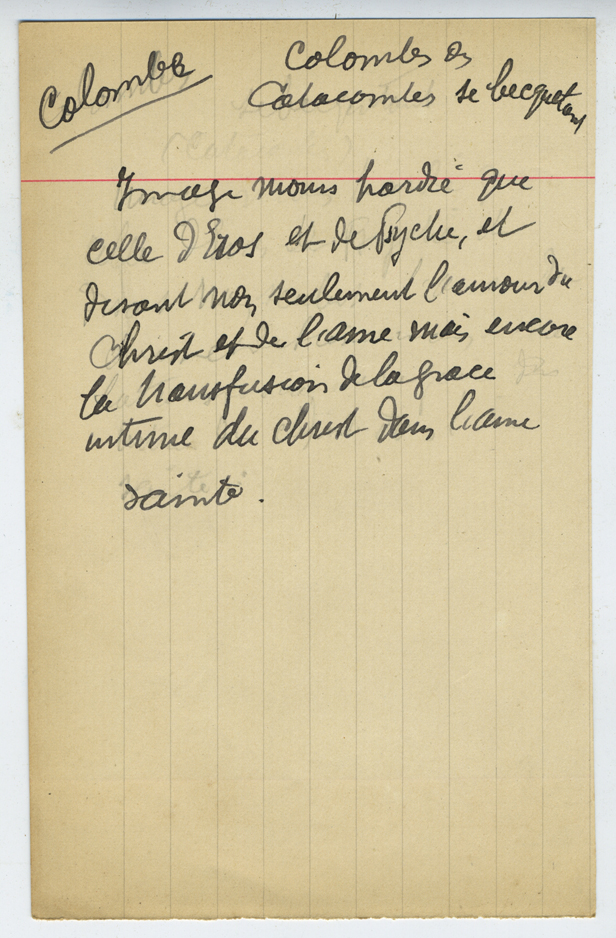 Colombe
Colombes des
Catacombes se becquetant
Image moins hardie que
celle d'Eros et de Psyche, et
disant non seulement l'amour du
Christ et de l'ame mais encore
la transfusion de la grace
intime du Christ dans l'ame
sainte.